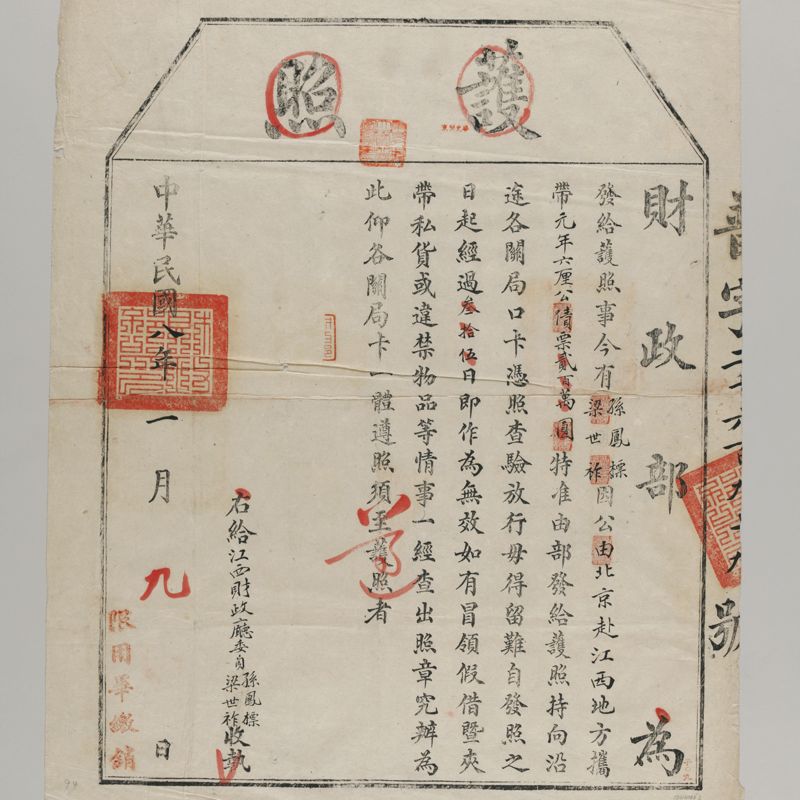 護照
財政部為
發給護照事今有孫鳳標梁世祚因公由北京赴江西地方攜
帶元年六厘公債票貳百萬圓特准由部發給護照持向沿
途各關局口卡憑照查驗放行毋得留難自發照之
日起經過叁拾伍日即作為無效如有冒領假借暨夾
帶私貨或違禁物品等情事一經查出照章究辦為
此仰各關局卡一體遵照須至護照者
遵
右給江西財政廳委員孫鳳標梁世祚收執
中華民國八年一月九日
限用畢繳銷